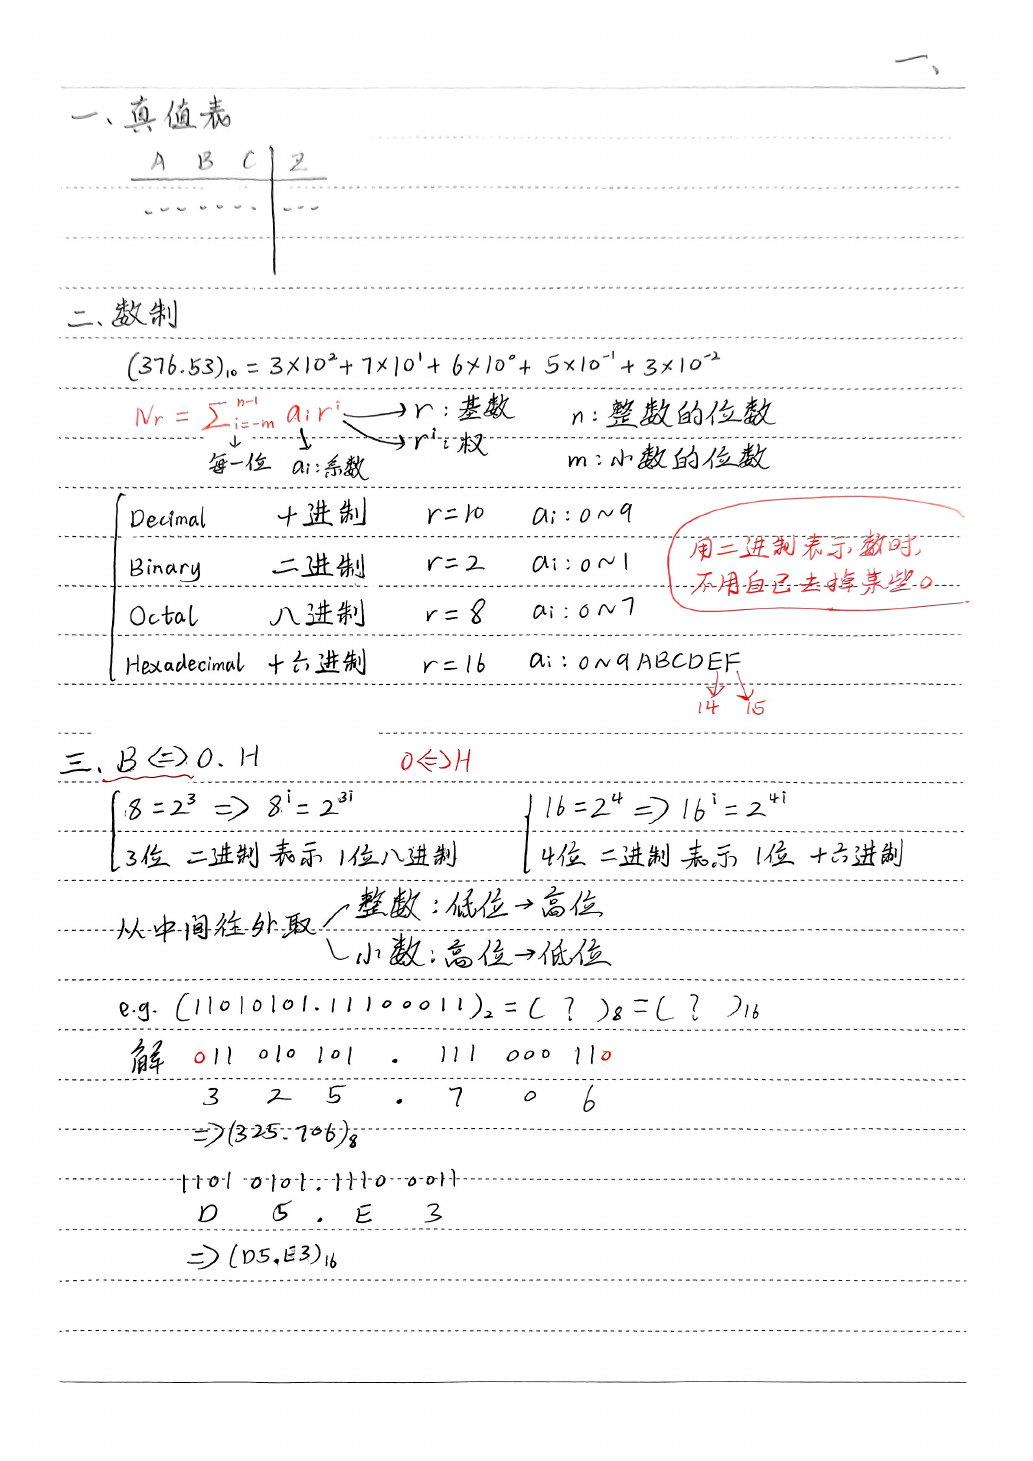 一、
一、真值表
A B C Z
二、数制
(376.53)₁₀ = 3×10² + 7×10¹ + 6×10⁰ + 5×10⁻¹ + 3×10⁻²
Nr = ∑ⁿ⁻¹ᵢ₌₋ₘ aᵢrⁱ → r：基数 n：整数的位数
→ rⁱ：权 m：小数的位数
每一位 ai：系数
Decimal 十进制 r=10 ai：0~9
Binary 二进制 r=2 ai：0~1
Octal 八进制 r=8 ai：0~7
Hexadecimal 十六进制 r=16 ai：0~9ABCDEF
14 15
用二进制表示数时，
不用自己去掉某些0
三、B⇔O、H O⇔H
8=2³ ⇒ 8ⁱ=2³ⁱ 16=2⁴ ⇒ 16ⁱ=2⁴ⁱ
3位 二进制 表示 1位八进制 4位 二进制 表示 1位 十六进制
从中间往外取 整数：低位→高位
小数：高位→低位
e.g. (11010101.11100011)₂ = ( ? )₈ = ( ? )₁₆
解 011 010 101 . 111 000 110
3 2 5 . 7 0 6
⇒(325.706)₈
1101 0101.1110 0011
D 5 . E 3
⇒(D5.E3)₁₆